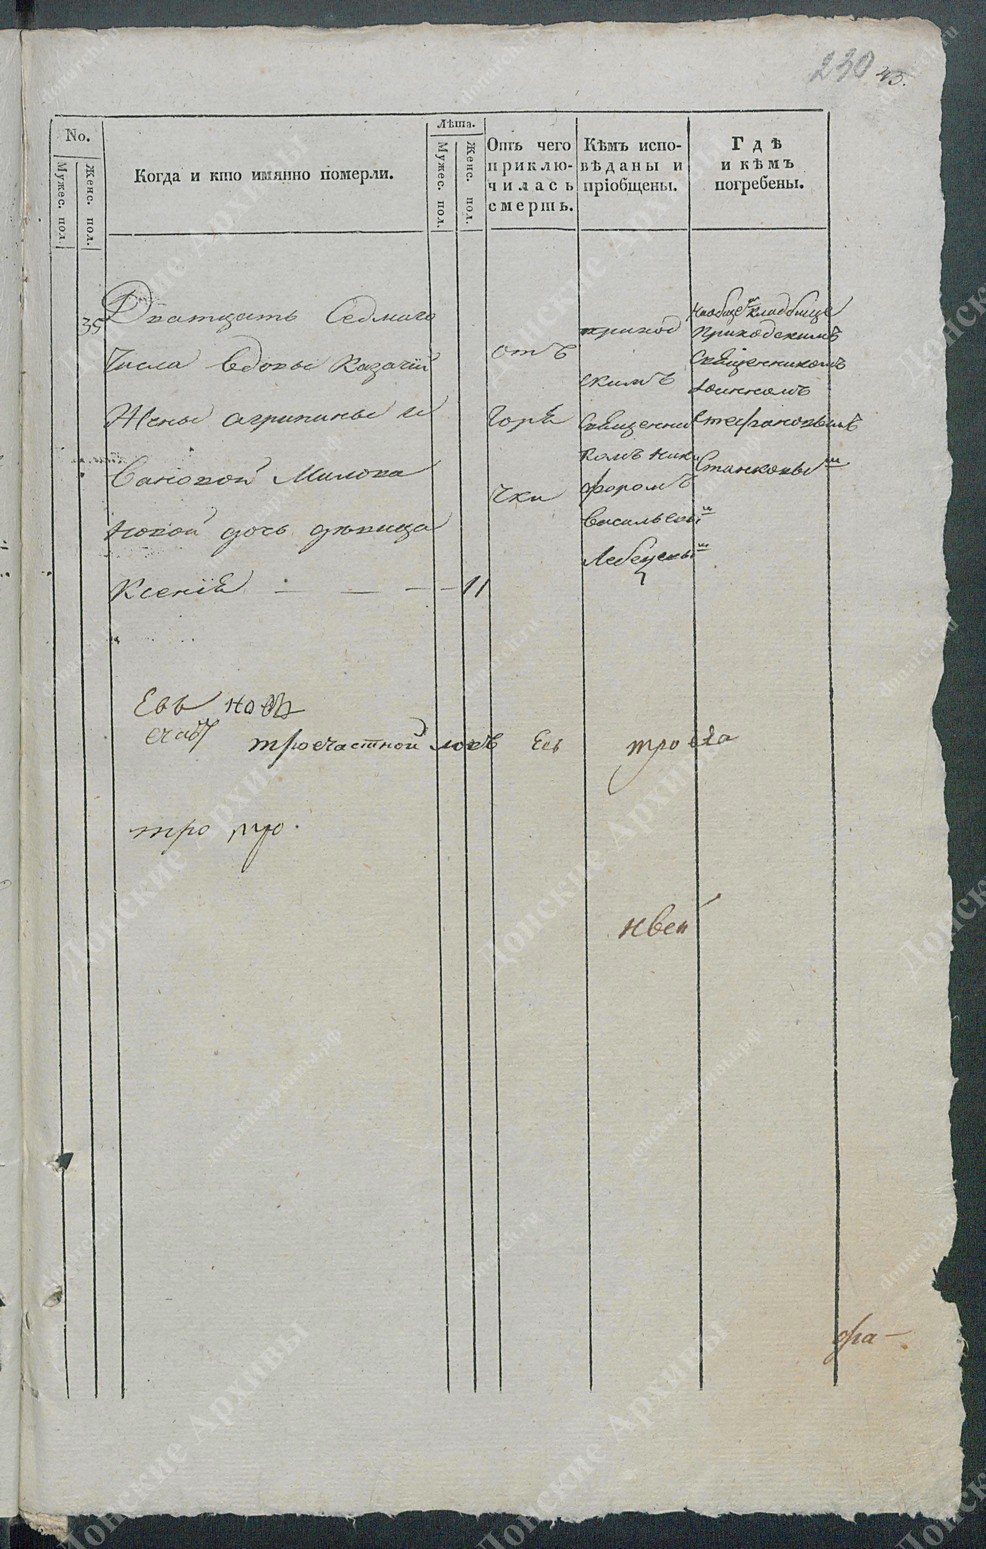 230 43.
No.
Мужес. пол.
Женс. пол.
Когда и кто имянно померли.
Лѣта.
Мужес. пол.
Женс. пол.
Отъ чего
приклю-
чилась
смерть.
Кѣмъ испо-
вѣданы и
пріобщены.
Гдѣ
и кѣмъ
погребены.
35
Дватцать седмаго
числа вдовы казачій
жены агрипины и
вановой Милова
новой дочь девица
Ксеніѣ — — — 11
отъ
горѣ
чки
приход
скимъ
священни
комъ Ники
форомъ
васильевы м
Лебедевы м
наобще м кладбище
приходскимъ
священникомъ
иоанномъ
стефановымъ
Станковы м
тросчастной
тро
тро
фра—